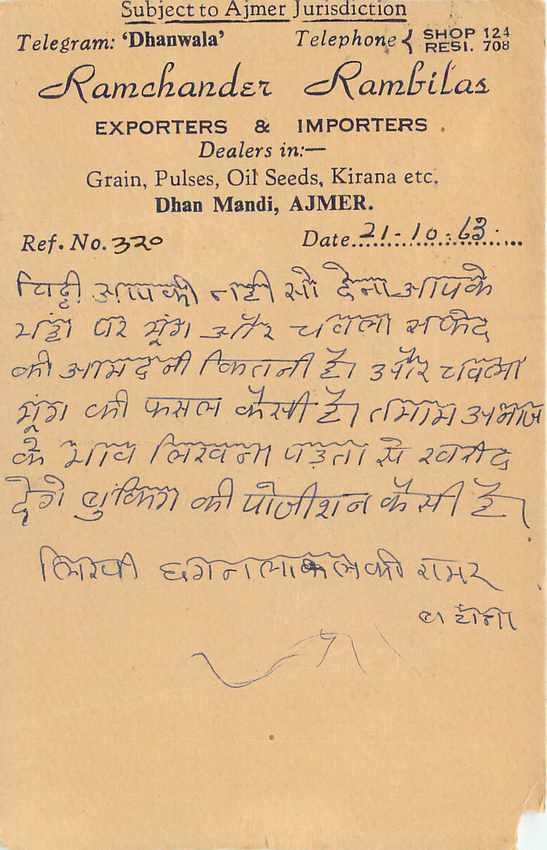 Subject to Ajmer Jurisdiction
Telegram: 'Dhanwala' Telephone { SHOP 124
RESI. 708
Ramchander Rambilas
EXPORTERS & IMPORTERS.
Dealers in:—
Grain, Pulses, Oil Seeds, Kirana etc.
Dhan Mandi, AJMER.
Ref. No. 320 Date 21-10-63
चिट्ठी आपकी नही सो देना आपके
यहां पर मूंग और चवला सफेद
की आमदनी कितनी है। और चवला
मूंग की फसल कैसी है। तमाम अनाज
के भाव लिखना पड़ता से खरीद
देगे बुकिंग की पोजीशन कैसी है।
लिखी छगनलाल की